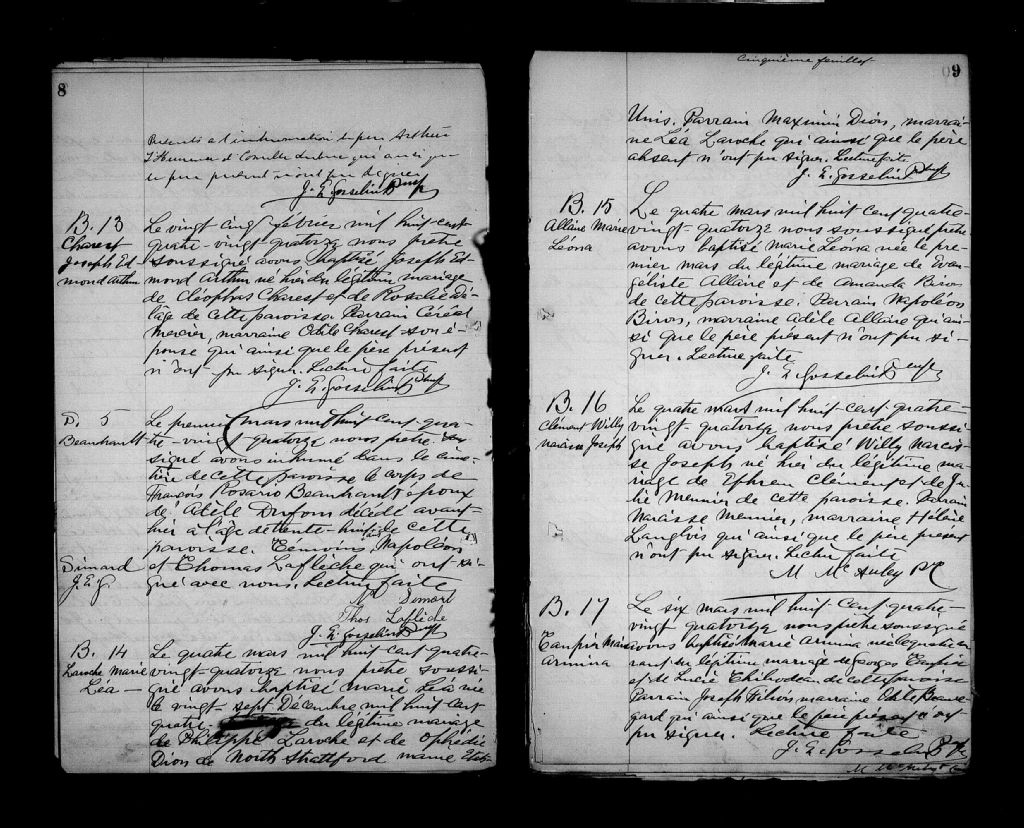 8
Présents à l'inhumation le père Arthur
père présent n'ont pu signer
J. E. Gosselin Ptre
B. 13
Charest
Joseph Ed-
mond Arthur
Le vingt cinq février mil huit cent
quatre-vingt-quatorze nous prêtre
soussigné avons baptisé Joseph Ed-
mond Arthur né hier du légitime mariage
de Cléophas Charest et de Rosalie Dé-
lâge de cette paroisse. Parrain Céréal
Mercier, marraine Odile Charest son é-
pouse qui ainsi que le père présent
n'ont pu signer. Lecture faite
J. E. Gosselin Ptre
D. 5
Beauhault
Le premier mars mil huit cent qua-
tre-vingt quatorze nous prêtre sous-
signé avons inhumé dans le cime-
tière de cette paroisse le corps de
François Rosario Beauhault époux
de Adèle Dufour décédé avant-
hier à l'âge de trente-huit de cette
paroisse. Témoins, Napoléon
Simard
J.E.G
et Thomas Laflèche qui ont si-
gné avec nous. Lecture faite
Thos Laflèche
J. E. Gosselin Ptre
B. 14
Laroche Marie
Léa —
Le quatre mars mil huit cent quatre-
vingt-quatorze nous prêtre soussi-
gné avons baptisé Marie Léa née
le vingt-sept Décembre mil huit cent
quatre- du légitime mariage
de Philippe Laroche et de Ophédie
Dion de North Stratford maine Etats
Cinquième feuillet
9
Unis. Parrain Maximin Dion, marrai-
ne Léa Laroche qui ainsi que le père
absent n'ont pu signer. Lecture faite
J. E. Gosselin Ptre
B. 15
Allaire Marie
Léona
Le quatre mars mil huit cent quatre-
vingt-quatorze nous soussigné prêtre
avons baptisé Marie Léona née le pre-
mier mars du légitime mariage de Evan-
géliste Allaire et de Amanda Biros
de cette paroisse. Parrain Napoléon
Biros, marraine Adèle Allaire qui ain-
si que le père présent n'ont pu si-
gner. Lecture faite
J. E. Gosselin Ptre
B. 16
Clément Willy
Narcisse Joseph
Le quatre mars mil huit cent quatre-
vingt quatorze nous prêtre soussi-
gné avons baptisé Willy Narcis-
se Joseph né hier du légitime ma-
riage de Ephrem Clément et de Ju-
lie Meunier de cette paroisse. Parrain
Narcisse Meunier, marraine Hélène
Langlois qui ainsi que le père présent
n'ont pu signer. Lecture faite
M McAuley Ptr
B. 17
Marie
Armina
Le six mars mil huit cent quatre-
vingt quatorze nous prêtre soussigné
avons baptisé Marie Armina née le quatre cou-
rant du légitime mariage de Georges
et de Lucie Thibodeau de cette paroisse
Parrain Joseph marraine Odile Beaure-
gard qui ainsi que le père présent n'ont
pu signer. Lecture faite
J. E. Gosselin Ptre